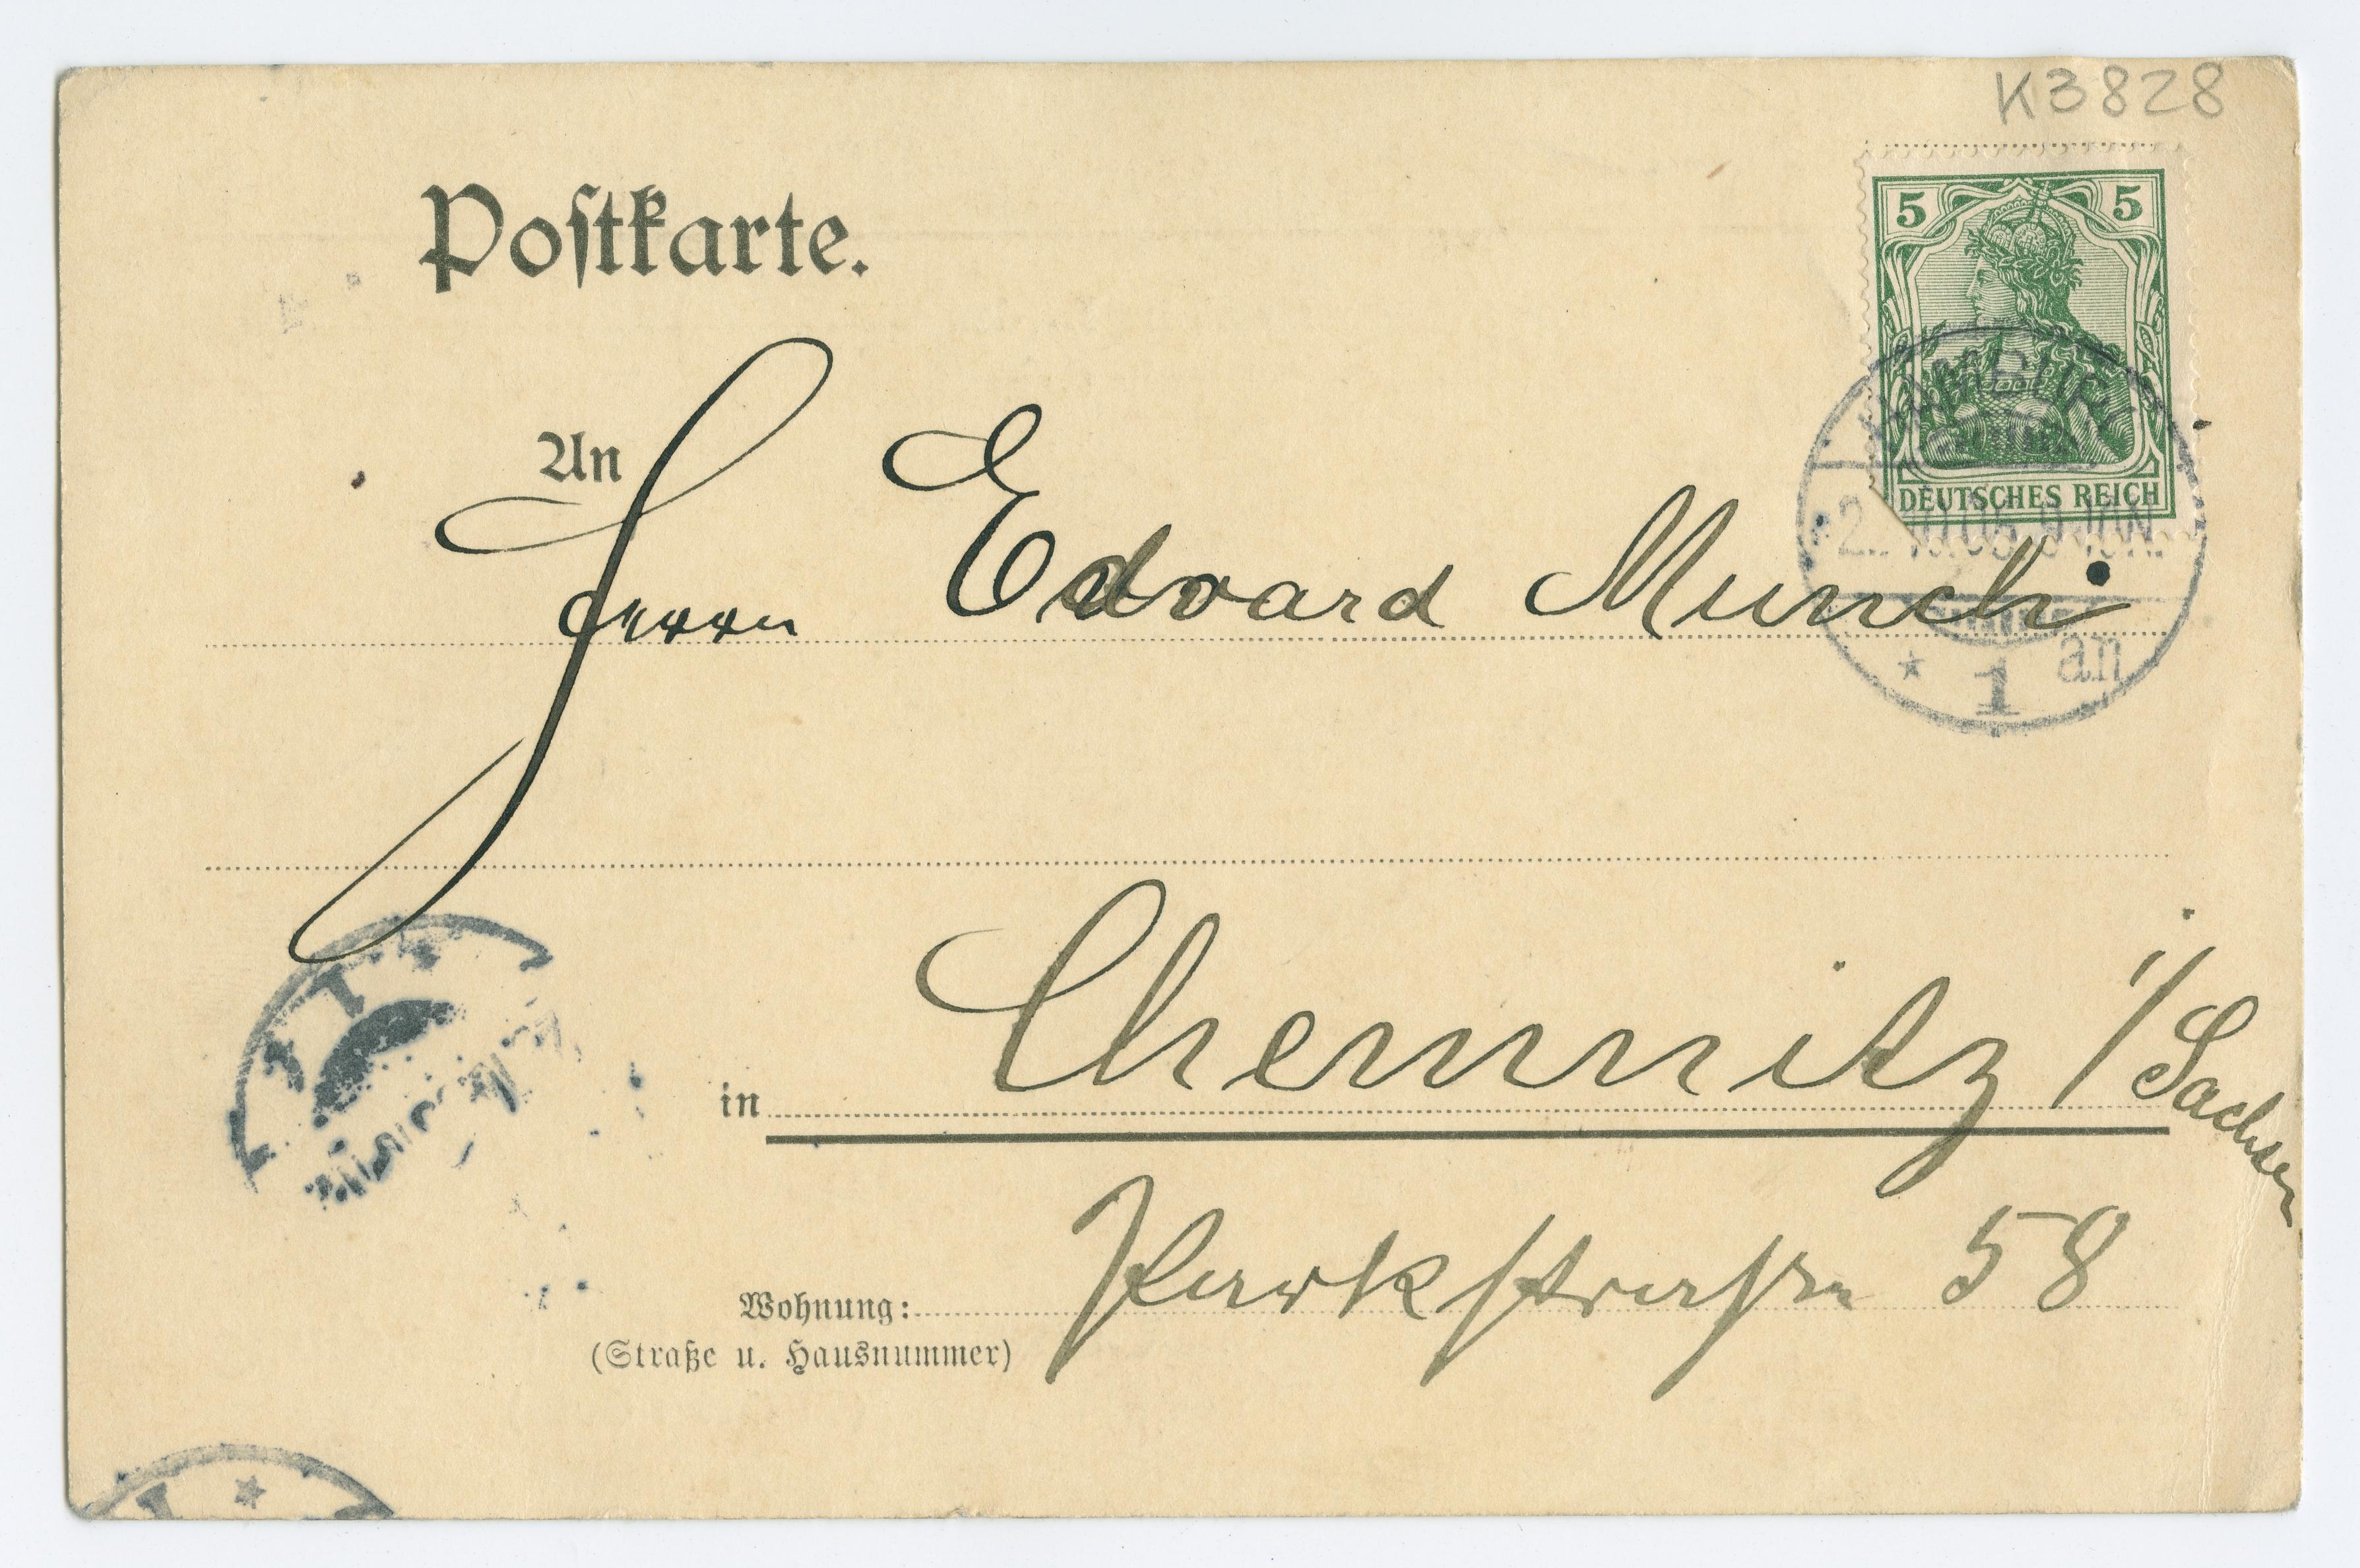 K3828
Postkarte.
5 5
DEUTSCHES REICH
HAMBURG
1 an
An
Herrn Edvard Munch
in Chemnitz i/Sachsen
Wohnung: Parkstrasse 58
(Straße u. Hausnummer)